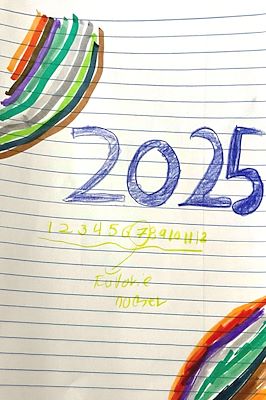 2025
1 2 3 4 5 6 7 8 9 10 11 12